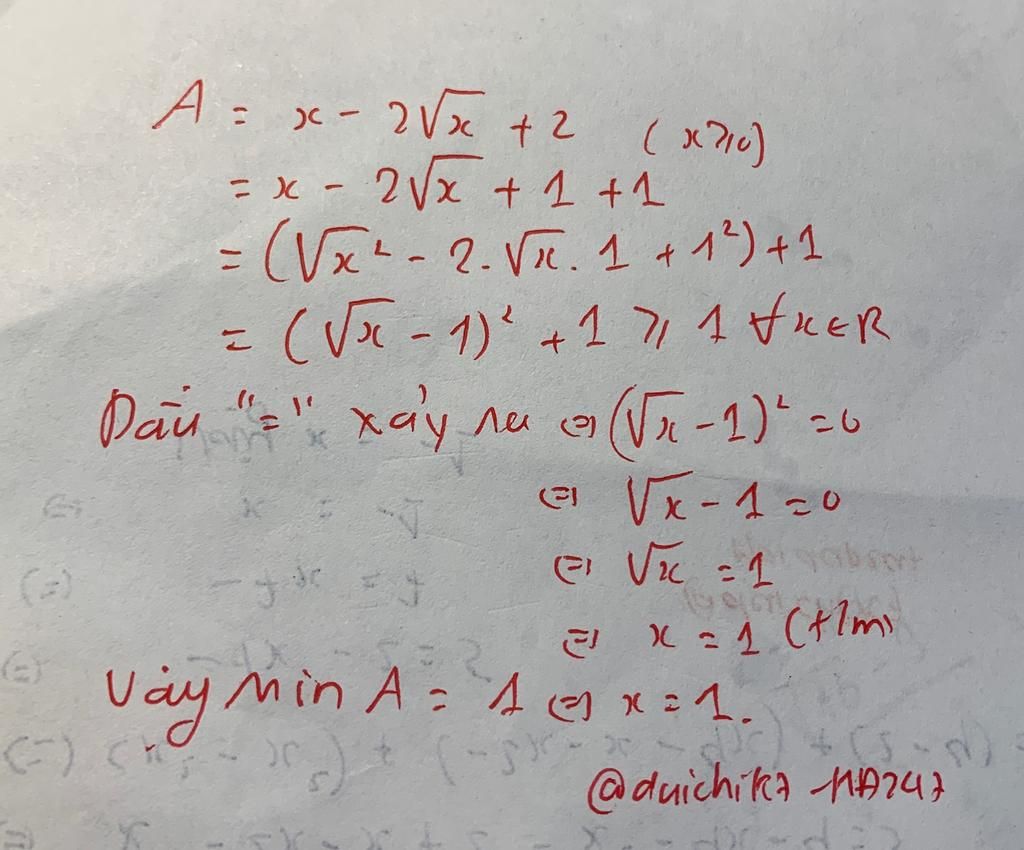 A = x - 2√x + 2 (x ≥ 0)
= x - 2√x + 1 + 1
= (√x² - 2.√x.1 + 1²) + 1
= (√x - 1)² + 1 ≥ 1 ∀x∈R
Dấu "=" xảy ra ⇔ (√x - 1)² = 0
⇔ √x - 1 = 0
⇔ √x = 1
⇔ x = 1 (t/m)
Vậy Min A = 1 ⇔ x = 1.